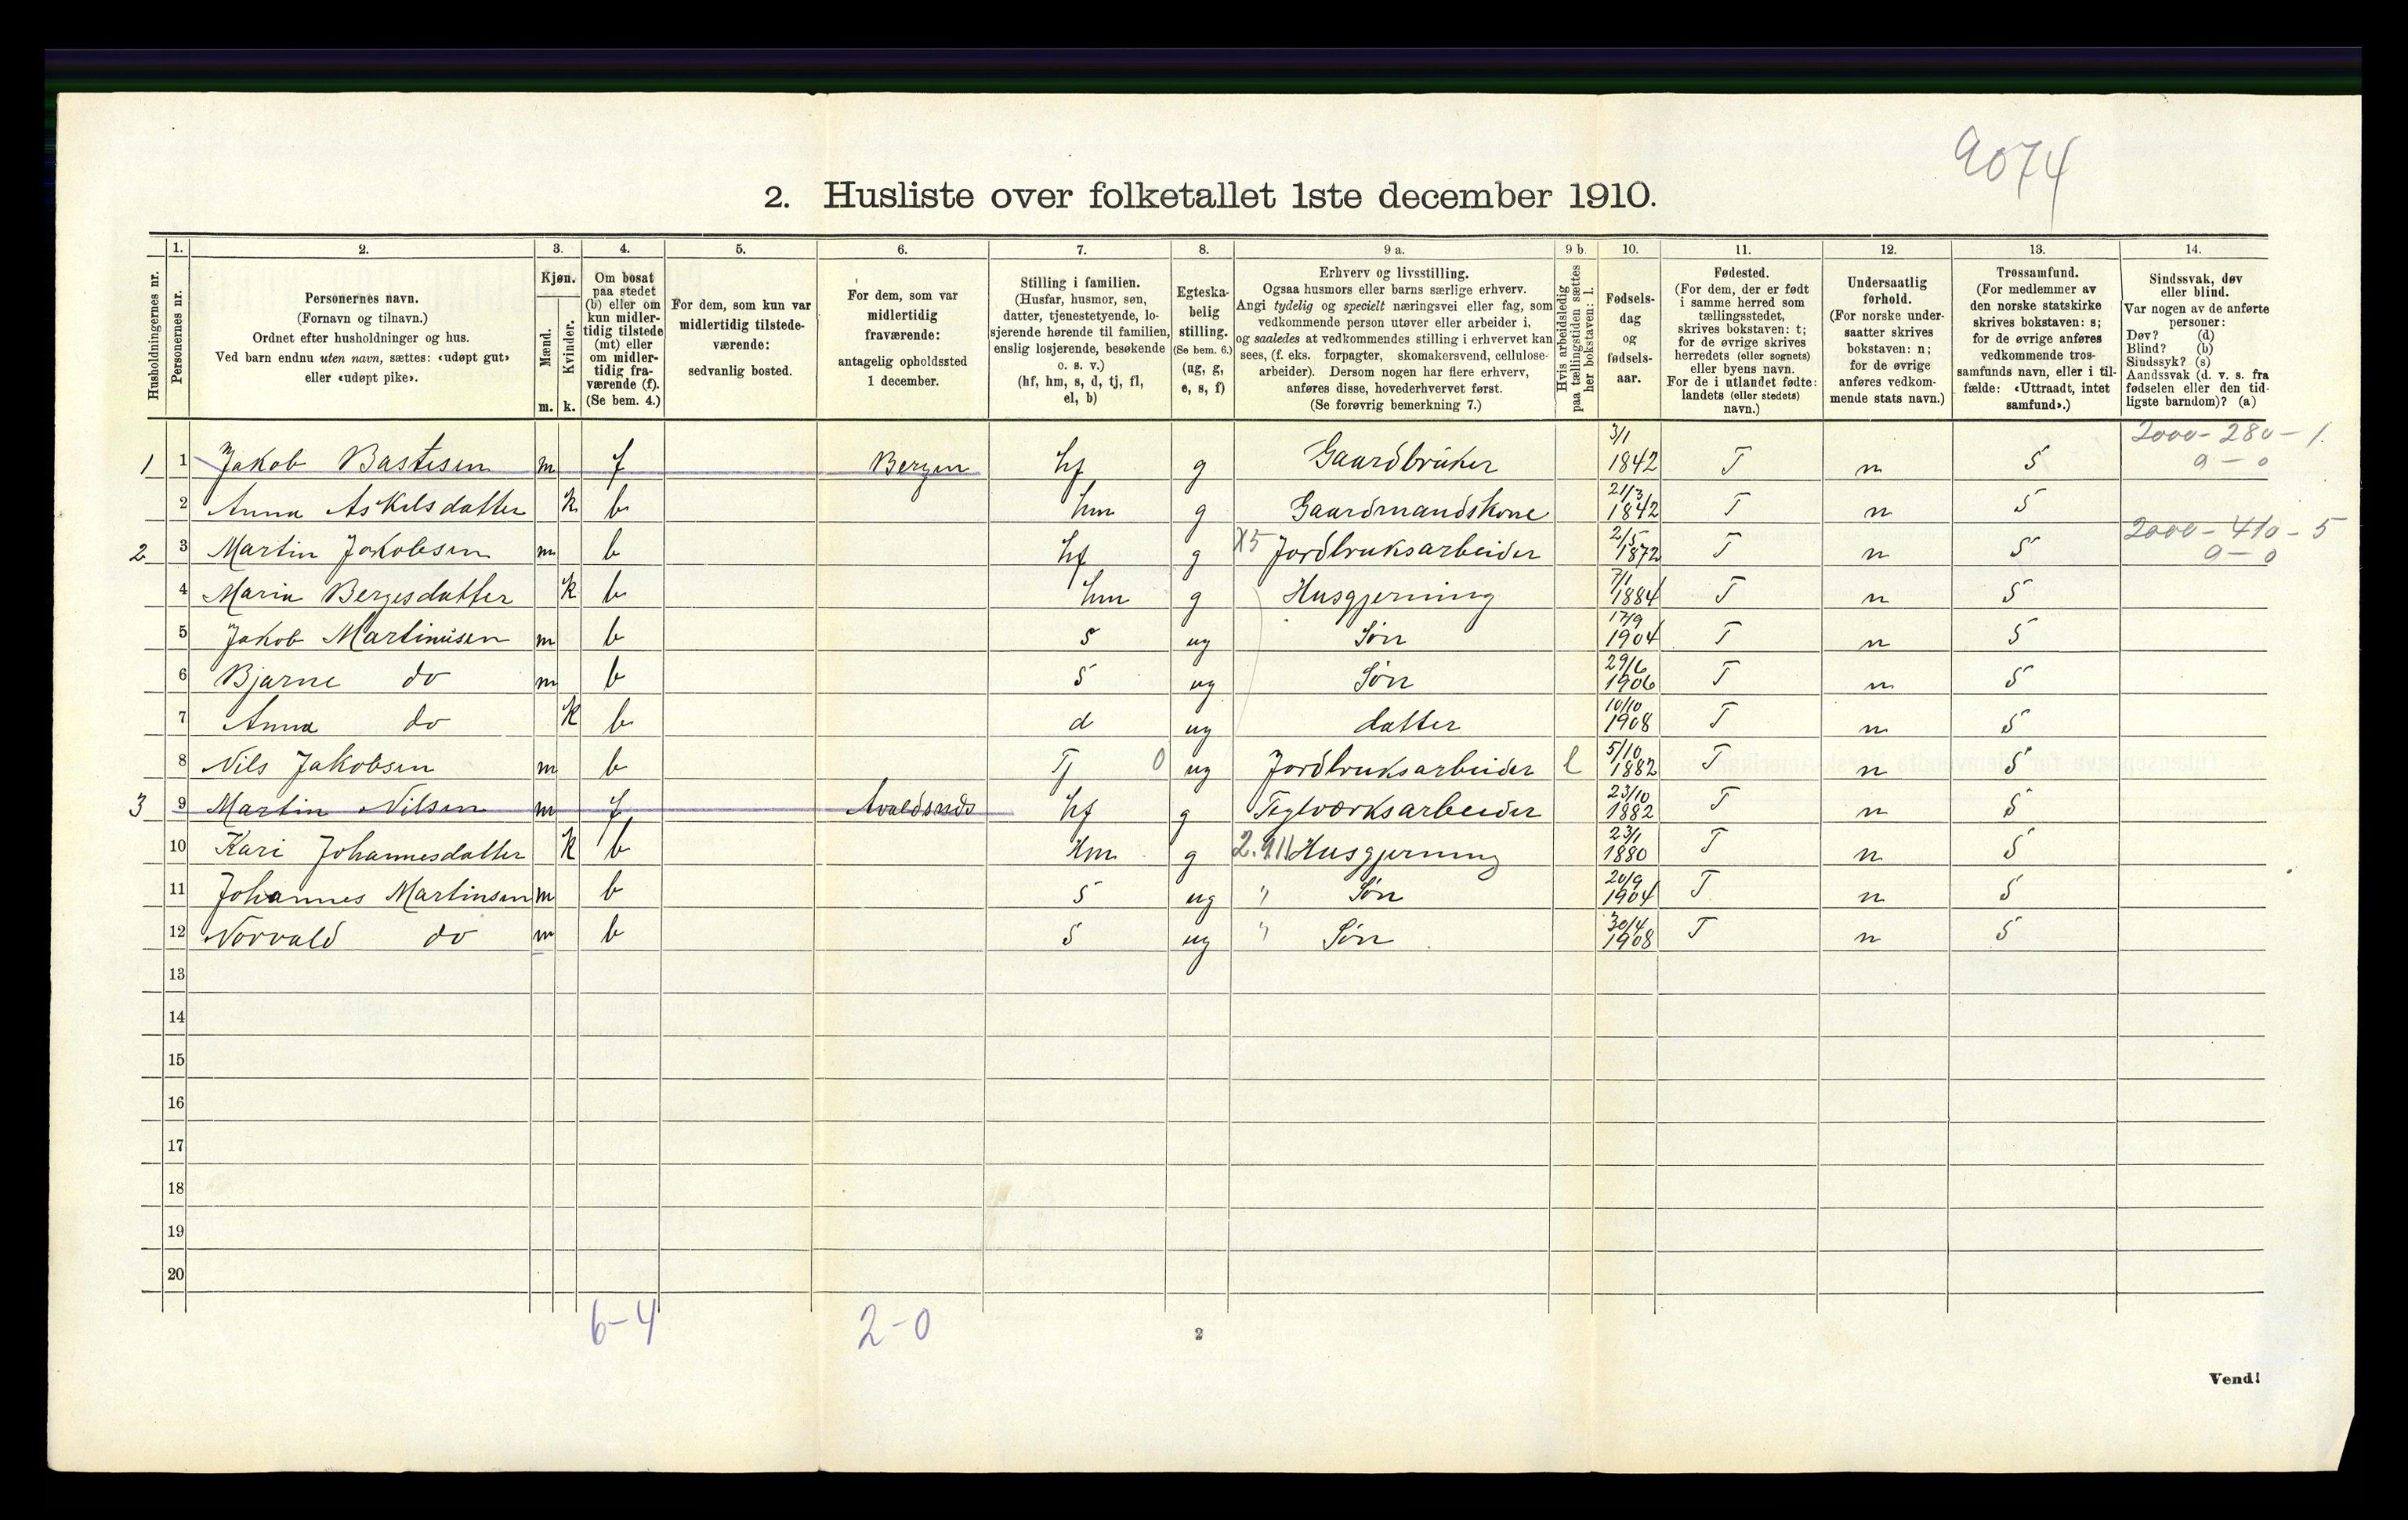 9074
2. Husliste over folketallet 1ste december 1910.
Husholdningernes nr.
1. 2. 3. 4. 5. 6. 7. 8. 9 a. 9 b. 10. 11. 12. 13. 14.
Personernes nr.
Personernes navn.
(Fornavn og tilnavn.)
Ordnet efter husholdninger og hus.
Ved barn endnu uten navn, sættes: «udøpt gut»
eller «udøpt pike».
Kjøn.
Mænd.
Kvinder.
m. k.
Om bosat
paa stedet
(b) eller om
kun midler-
tidig tilstede
(mt) eller
om midler-
tidig fra-
værende (f).
(Se bem. 4.)
For dem, som kun var
midlertidig tilstede-
værende:
sedvanlig bosted.
For dem, som var
midlertidig
fraværende:
antagelig opholdssted
1 december.
Stilling i familien.
(Husfar, husmor, søn,
datter, tjenestetyende, lo-
sjerende hørende til familien,
enslig losjerende, besøkende
o. s. v.)
(hf, hm, s, d, tj, fl,
el, b)
Egteska-
belig
stilling.
(Se bem. 6.)
(ug, g,
e, s, f)
Erhverv og livsstilling.
Ogsaa husmors eller barns særlige erhverv.
Angi tydelig og specielt næringsvei eller fag, som
vedkommende person utøver eller arbeider i,
og saaledes at vedkommendes stilling i erhvervet kan
sees, (f. eks. forpagter, skomakersvend, cellulose-
arbeider). Dersom nogen har flere erhverv,
anføres disse, hovederhvervet først.
(Se forøvrig bemerkning 7.)
Hvis arbeidsledig
paa tællingstiden sættes
her bokstaven: l.
Fødsels-
dag
og
fødsels-
aar.
Fødested.
(For dem, der er født
i samme herred som
tællingsstedet,
skrives bokstaven: t;
for de øvrige skrives
herredets (eller sognets)
eller byens navn.
For de i utlandet fødte:
landets (eller stedets)
navn.)
Undersaatlig
forhold.
(For norske under-
saatter skrives
bokstaven: n;
for de øvrige
anføres vedkom-
mende stats navn.)
Trossamfund.
(For medlemmer av
den norske statskirke
skrives bokstaven: s;
for de øvrige anføres
vedkommende tros-
samfunds navn, eller i til-
fælde: «Uttraadt, intet
samfund».)
Sindssvak, døv
eller blind.
Var nogen av de anførte
personer:
Døv? (d)
Blind? (b)
Sindssyk? (s)
Aandssvak (d. v. s. fra
fødselen eller den tid-
ligste barndom)? (a)
1 1 Jakob Bastesen m f Bergen hf g Gaardbruker 3/1 1842 T n S 2000-280-1. 9-0
2 Anna Askilsdatter k b hm g Gaardmandskone 21/3 1842 T n S
2 3 Martin Jakobsen m b hf g X5 Jordbruksarbeider 2/5 1872 T n S 2000-410-5 9-0
4 Maria Bergesdatter k b hm g Husgjerning 7/1 1884 T n S
5 Jakob Martinusen m b s ug Søn 17/9 1904 T n S
6 Bjarne do m b s ug Søn 29/6 1906 T n S
7 Anna do k b d ug datter 10/10 1908 T n S
8 Nils Jakobsen m b Tj 0 ug Jordbruksarbeider l 5/10 1882 T n S
3 9 Martin Nilsen m f hf g Teglværksarbeider 23/10 1882 T n S
10 Kari Johannesdatter k b Hm g Husgjerning 23/1 1880 T n S
11 Johannes Martinsen m b s ug " Søn 20/9 1904 T n S
12 Norvald do m b s ug " Søn 30/4 1908 T n S
13
14
15
16
17
18
19
20
6-4 2-0
2
Vend!